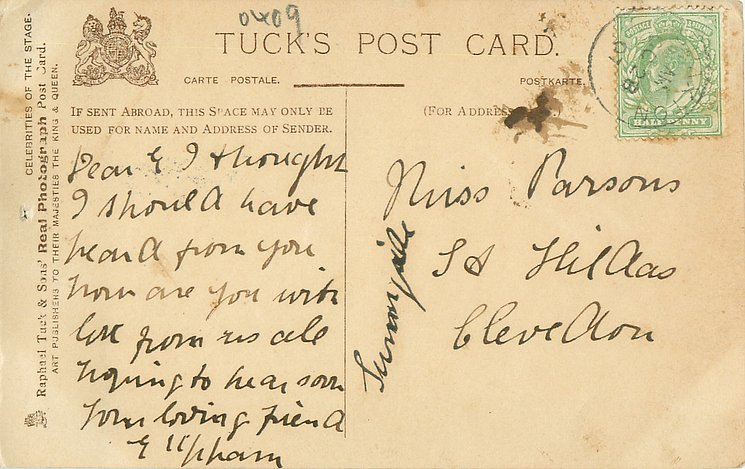 0409
TUCK'S POST CARD.
CARTE POSTALE.
POSTKARTE.
IF SENT ABROAD, THIS SPACE MAY ONLY BE
USED FOR NAME AND ADDRESS OF SENDER.
(FOR ADDRESS
CELEBRITIES OF THE STAGE.
Raphael Tuck & Sons' Real Photograph Post Card.
ART PUBLISHERS TO THEIR MAJESTIES THE KING & QUEEN.
Dear E I thought
I should have
heard from you
how are you with
love from us all
hoping to hear soon
Your loving friend
E Upham
Miss Parsons
St Hildas
Clevedon
Sunnyside
POSTAGE REVENUE
HALFPENNY